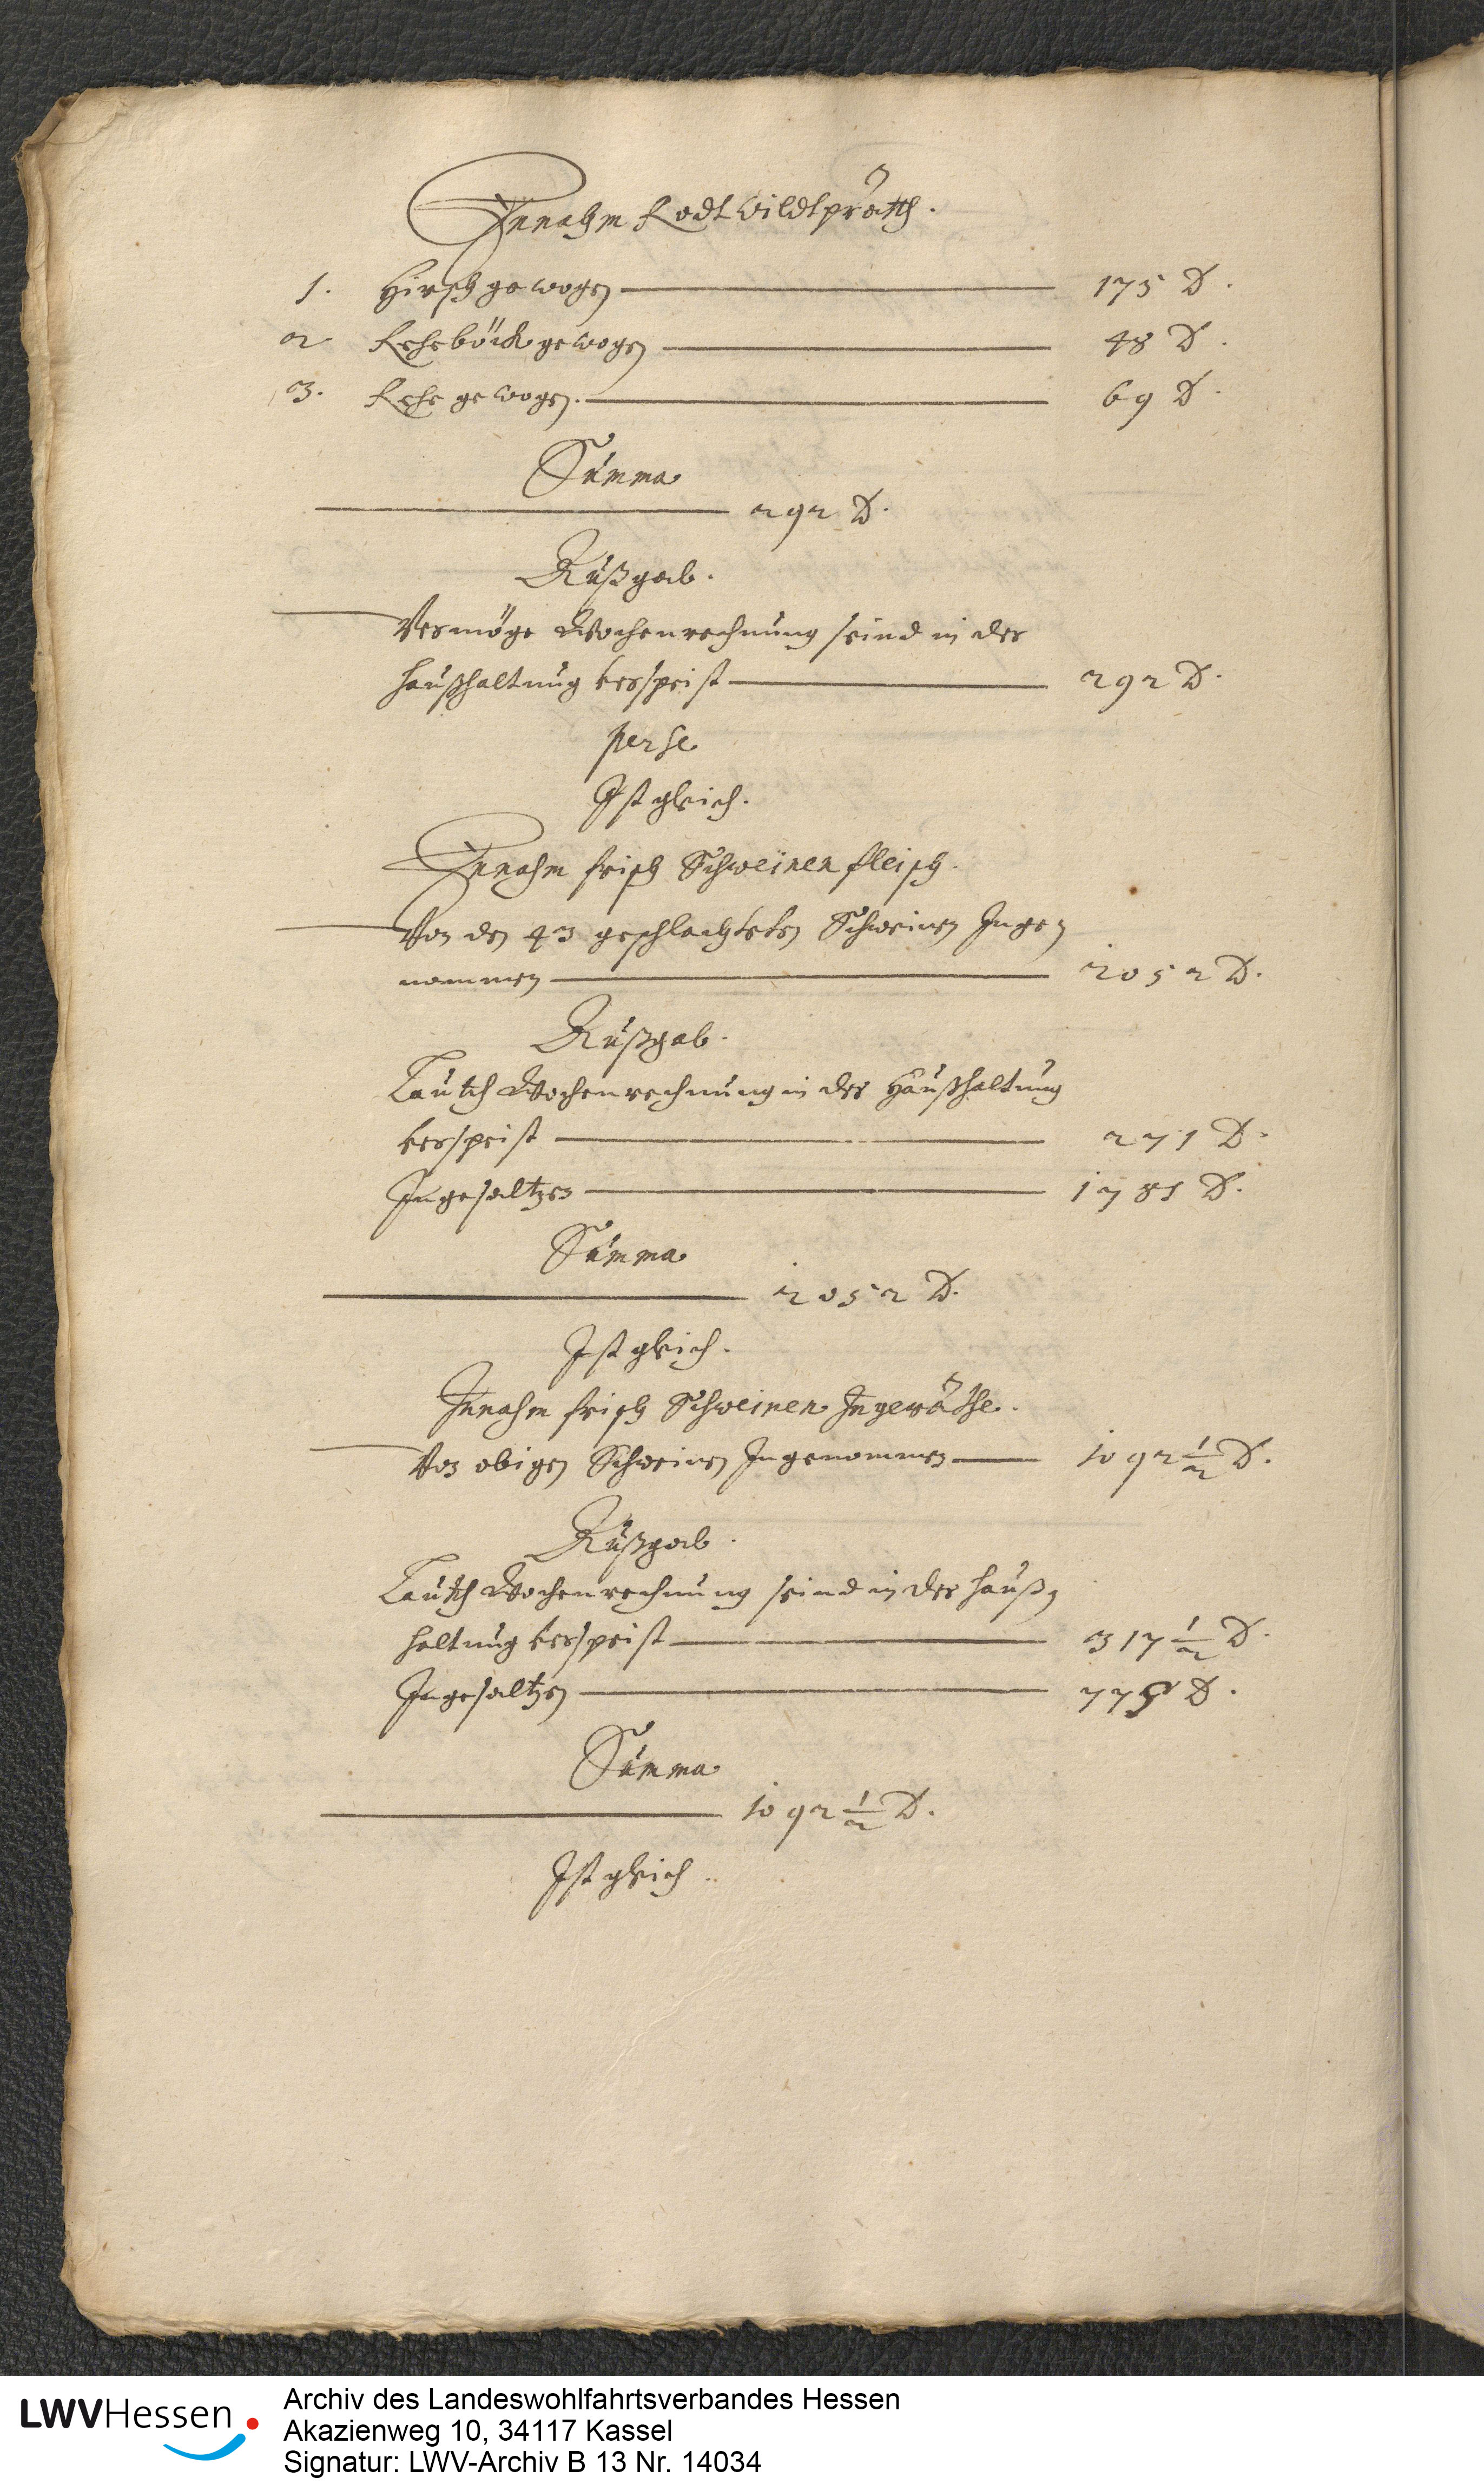 Innahm Rodt Wildtpräth.
1. Hirsch gewogen 175 ℔.
2 Reheböck gewogen 48 ℔.
3. Rehe gewogen. 69 ℔.
Summa
292 ℔.
Außgab.
Vermöge Wochenrechnung seind in der
haußhaltung verspeist 292 ℔.
per se
Ist gleich.
Innahm frisch Schweinen fleisch.
Von den 43 geschlachteten Schweinen Inge-
nommen 2052 ℔.
Außgab.
Lauth Wochenrechnung in der Haußhaltung
verspeist 271 ℔.
Ingesaltzen 1781 ℔.
Summa
2052 ℔.
Ist gleich.
Innahm frisch Schweinen Ingeräthe.
Von obigen Schweinen Ingenommen 1092 1/2 ℔.
Außgab.
Lauth Wochenrechnung seind in der hauß-
haltung verspeist 317 1/2 ℔.
Ingesaltzen 775 ℔.
Summa
1092 1/2 ℔.
Ist gleich.
LWVHessen
Archiv des Landeswohlfahrtsverbandes Hessen
Akazienweg 10, 34117 Kassel
Signatur: LWV-Archiv B 13 Nr. 14034